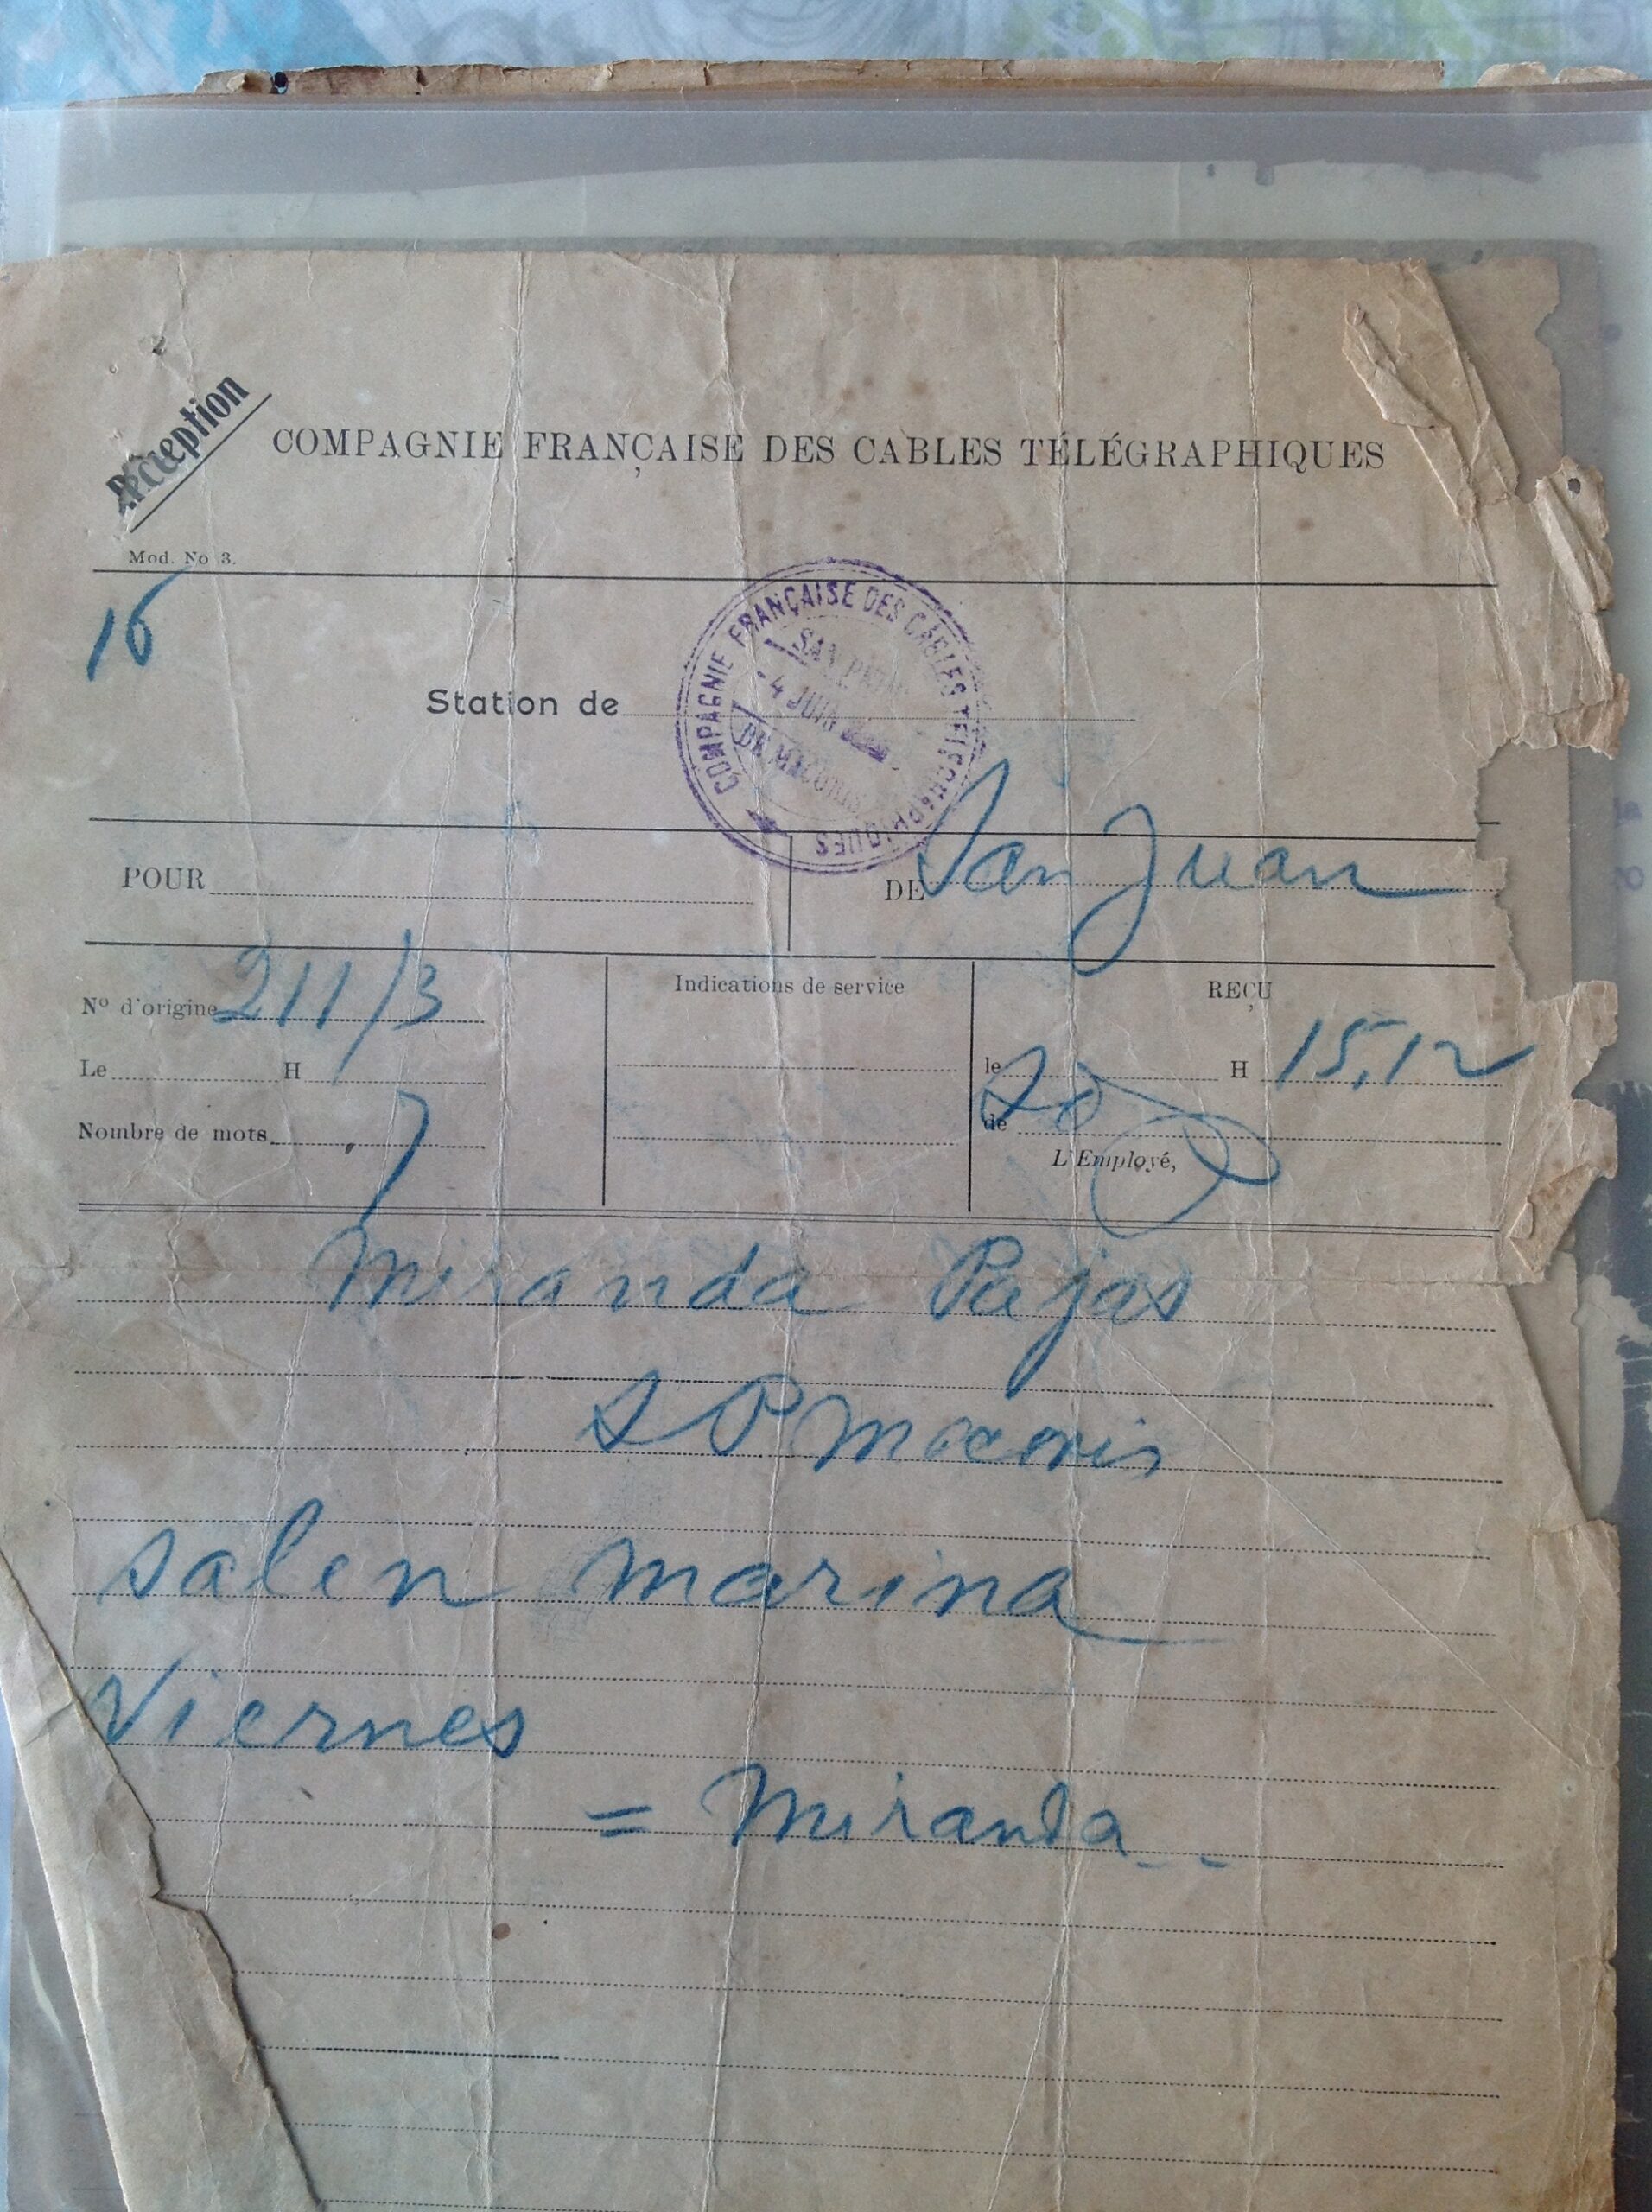 Réception
COMPAGNIE FRANÇAISE DES CABLES TÉLÉGRAPHIQUES
Mod. No 3.
16
Station de
COMPAGNIE FRANÇAISE DES CABLES TELEGRAPHIQUES
SAN PEDRO
4 JUIN
DE MACORIS
POUR
DE San Juan
No d'origine 211/3
Indications de service
REÇU
Le H
le H 15,12
Nombre de mots 7
de
L'Employé,
Miranda Pajas
S P Macoris
salen marina
Viernes
= Miranda